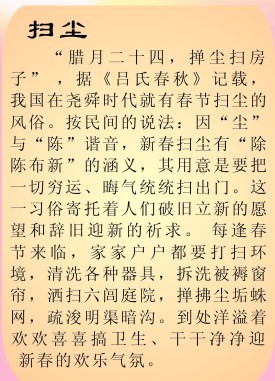 扫尘
“腊月二十四，掸尘扫房
子”，据《吕氏春秋》记载，
我国在尧舜时代就有春节扫尘的
风俗。按民间的说法：因“尘”
与“陈”谐音，新春扫尘有“除
陈布新”的涵义，其用意是要把
一切穷运、晦气统统扫出门。这
一习俗寄托着人们破旧立新的愿
望和辞旧迎新的祈求。 每逢春
节来临，家家户户都要打扫环
境，清洗各种器具，拆洗被褥窗
帘，洒扫六闾庭院，掸拂尘垢蛛
网，疏浚明渠暗沟。到处洋溢着
欢欢喜喜搞卫生、干干净净迎
新春的欢乐气氛。